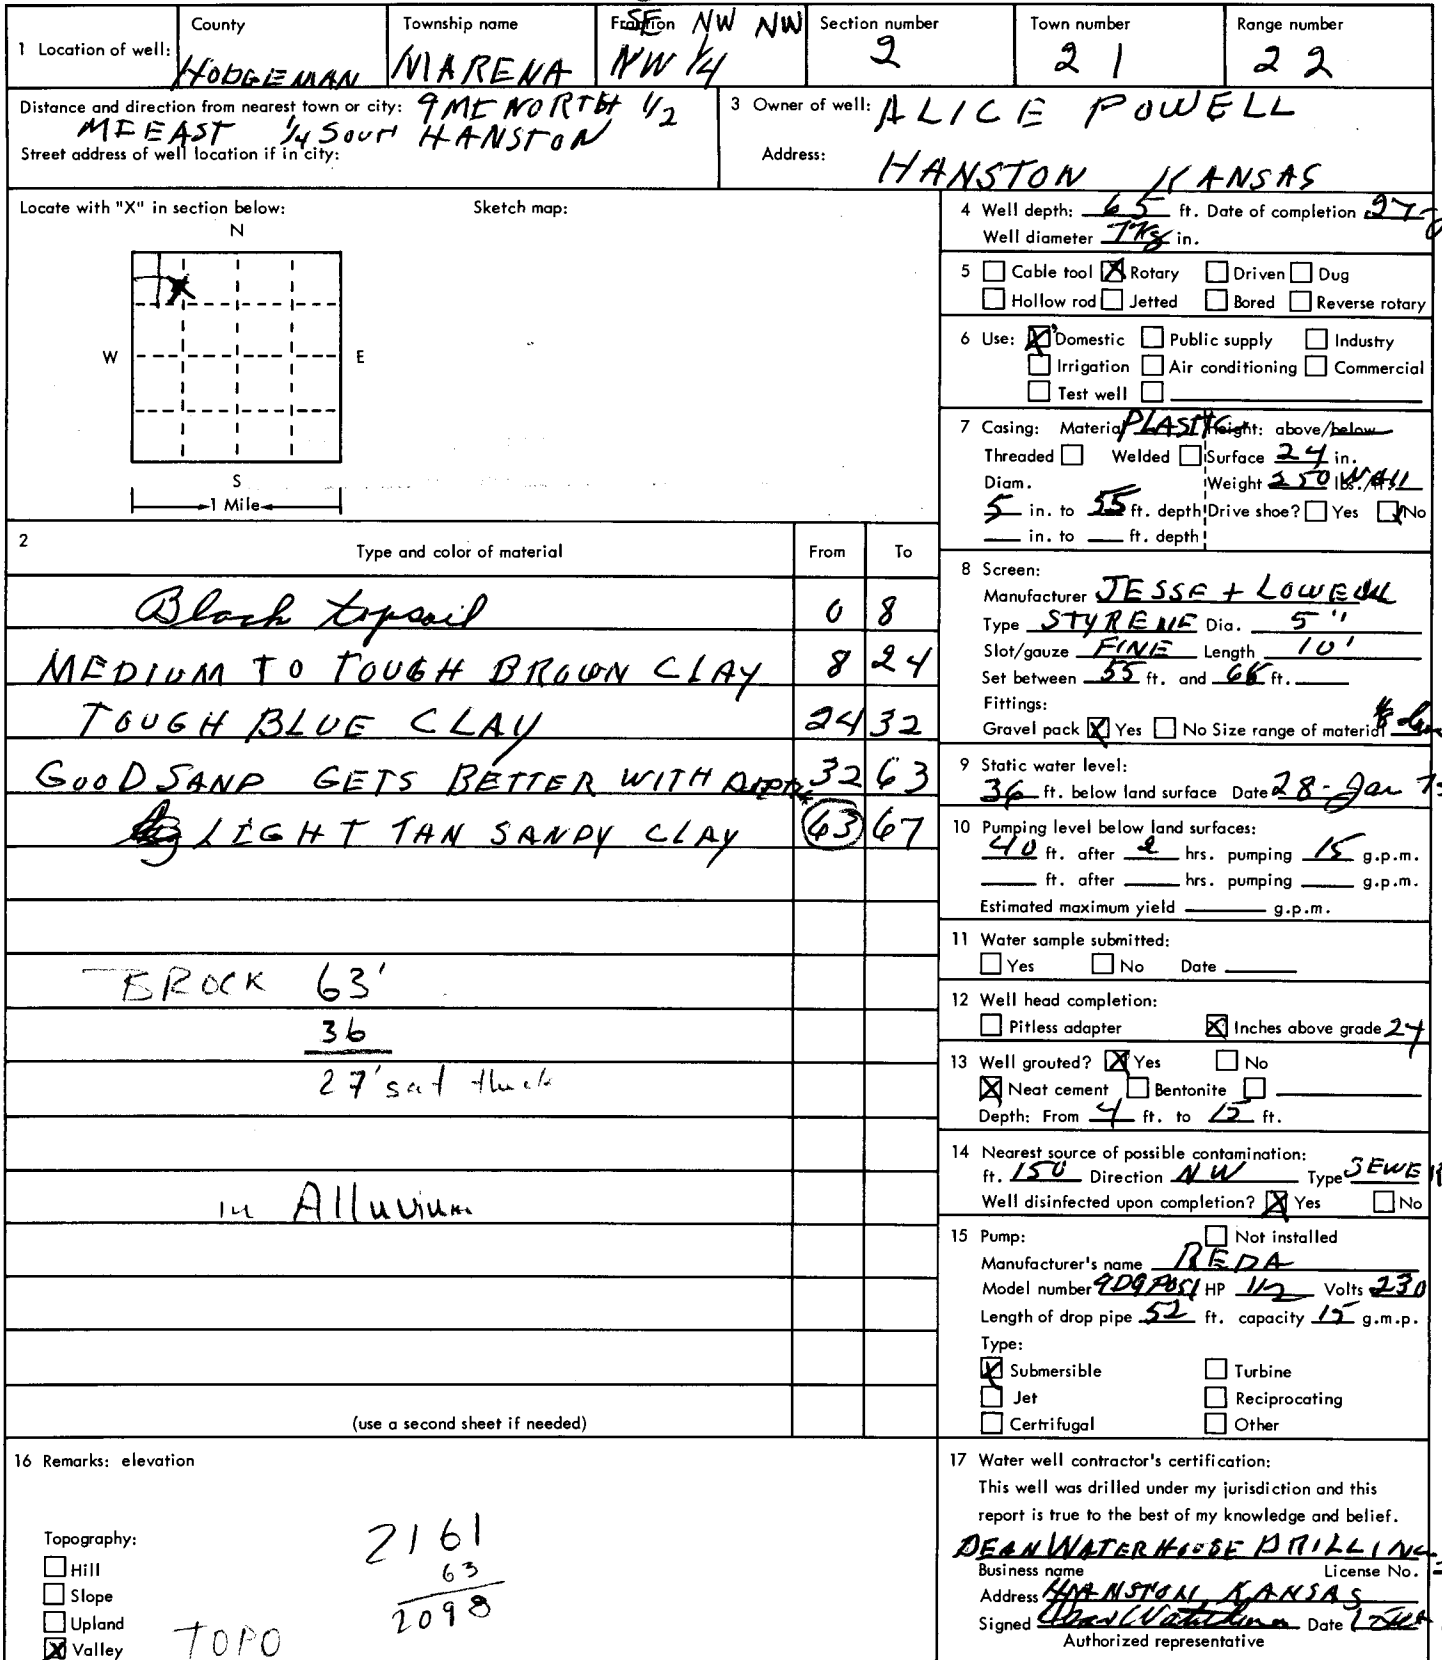 1 Location of well:
County
HODGEMAN
Township name
MARENA
Fraction SE NW NW
NW 1/4
Section number
2
Town number
21
Range number
22
Distance and direction from nearest town or city: 9 MI NORTH 1/2
MI EAST 1/4 SOUT HANSTON
Street address of well location if in city:
3 Owner of well: ALICE POWELL
Address:
HANSTON KANSAS
Locate with "X" in section below:
Sketch map:
N
W
E
S
1 Mile
4 Well depth: 65 ft. Date of completion 27-
Well diameter 7 7/8 in.
5 Cable tool X Rotary Driven Dug
Hollow rod Jetted Bored Reverse rotary
6 Use: X Domestic Public supply Industry
Irrigation Air conditioning Commercial
Test well
7 Casing: Material PLASTIC Height: above/below
Threaded Welded Surface 24 in.
Diam. Weight 250 lbs./ft. WALL
5 in. to 55 ft. depth Drive shoe? Yes No
in. to ft. depth
2
Type and color of material
From
To
Black topsoil 0 8
MEDIUM TO TOUGH BROWN CLAY 8 24
TOUGH BLUE CLAY 24 32
GOOD SAND GETS BETTER WITH DEPTH 32 63
LIGHT TAN SANDY CLAY 63 67
BROCK 63'
36
27' sat thick
in Alluvium
(use a second sheet if needed)
8 Screen:
Manufacturer JESSE +
Type STYRENE Dia. 5"
Slot/gauze FINE Length 10'
Set between 55 ft. and 65 ft.
Fittings:
Gravel pack X Yes No Size range of material
9 Static water level:
36 ft. below land surface Date 28-Jan 7
10 Pumping level below land surfaces:
40 ft. after 2 hrs. pumping 15 g.p.m.
ft. after hrs. pumping g.p.m.
Estimated maximum yield g.p.m.
11 Water sample submitted:
Yes No Date
12 Well head completion:
Pitless adapter X Inches above grade 24
13 Well grouted? X Yes No
X Neat cement Bentonite
Depth: From 4 ft. to 15 ft.
14 Nearest source of possible contamination:
ft. 150 Direction NW Type SEWER
Well disinfected upon completion? X Yes No
15 Pump: Not installed
Manufacturer's name REDA
Model number HP 1/2 Volts 230
Length of drop pipe 52 ft. capacity 15 g.m.p.
Type:
X Submersible Turbine
Jet Reciprocating
Certrifugal Other
16 Remarks: elevation
Topography:
Hill
Slope
Upland
X Valley
2161
63
2098
TOPO
17 Water well contractor's certification:
This well was drilled under my jurisdiction and this
report is true to the best of my knowledge and belief.
DEAN WATERHOUSE DRILLING
Business name License No.
Address HANSTON KANSAS
Signed Dean Waterhouse Date
Authorized representative